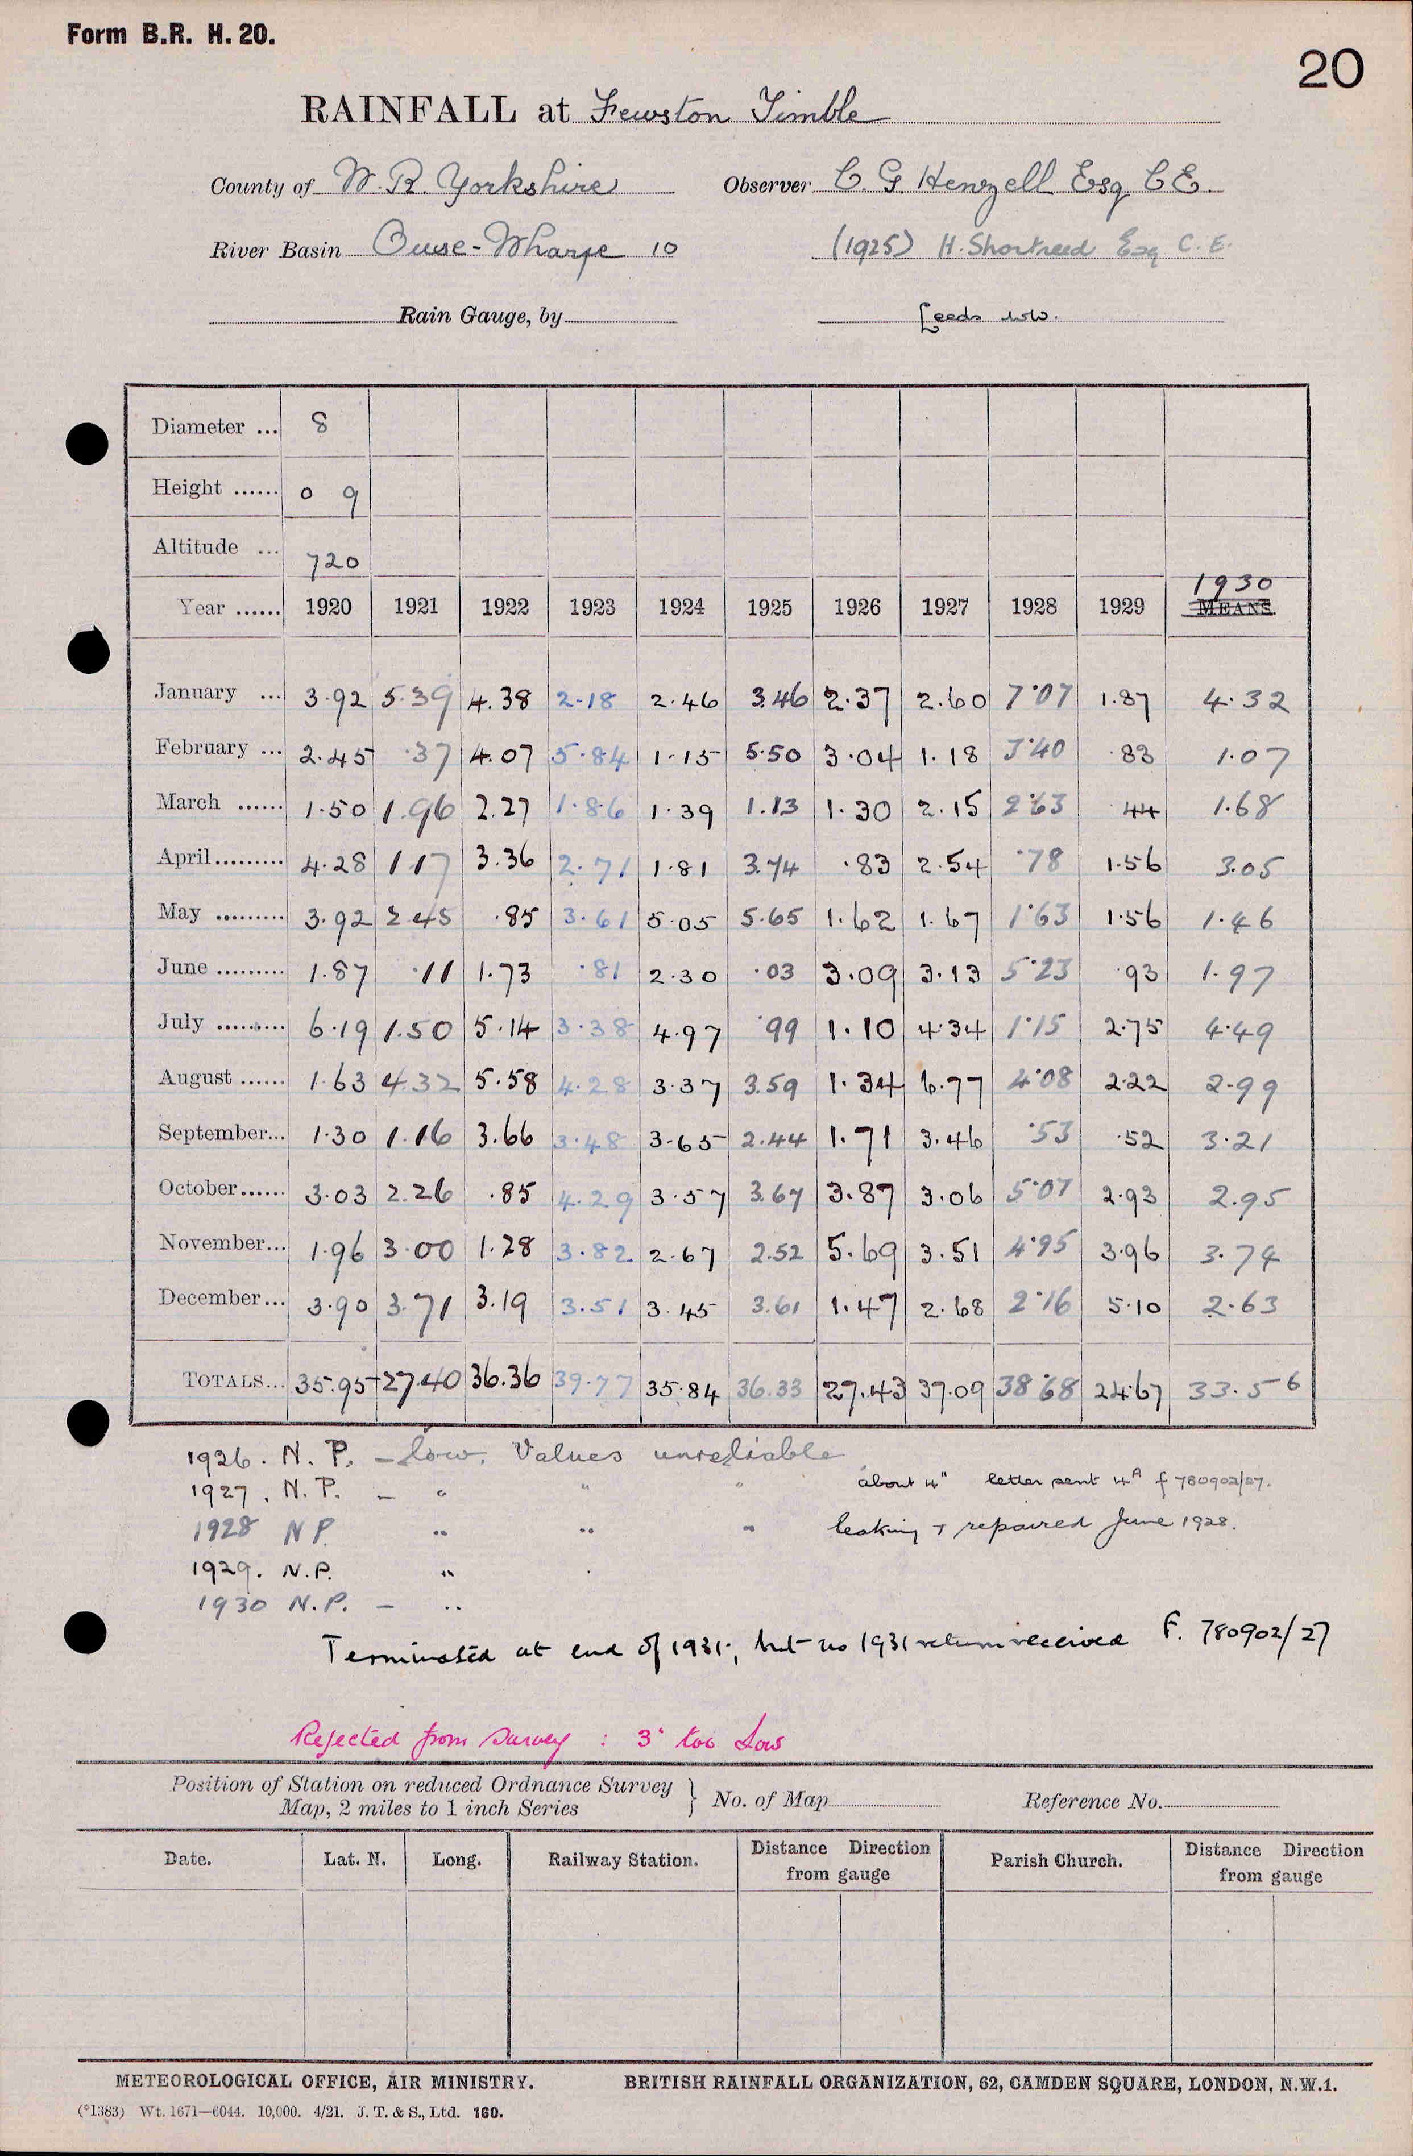 Form B.R. H. 20.
20
RAINFALL at Fewston Timble
County of W. R. Yorkshire Observer C G Henzell Esq C E.
River Basin Ouse-Wharfe 10 (1925) H. Shortreed Esq C. E.
Rain Gauge, by Leeds WW.
Diameter ... 8
Height ...... 0 9
Altitude ... 720
Year ...... 1920 1921 1922 1923 1924 1925 1926 1927 1928 1929 1930 MEANS.
January ... 3.92 5.39 4.38 2.18 2.46 3.46 2.37 2.60 7.07 1.87 4.32
February ... 2.45 .37 4.07 5.84 1.15 5.50 3.04 1.18 3.40 .83 1.07
March ...... 1.50 1.96 2.27 1.86 1.39 1.13 1.30 2.15 2.63 .44 1.68
April......... 4.28 1.17 3.36 2.71 1.81 3.74 .83 2.54 .78 1.56 3.05
May ......... 3.92 2.45 .85 3.61 5.05 5.65 1.62 1.67 1.63 1.56 1.46
June ......... 1.87 .11 1.73 .81 2.30 .03 3.09 3.13 5.23 .93 1.97
July ......... 6.19 1.50 5.14 3.38 4.97 .99 1.10 4.34 1.15 2.75 4.49
August ...... 1.63 4.32 5.58 4.28 3.37 3.59 1.34 6.77 4.08 2.22 2.99
September... 1.30 1.16 3.66 3.48 3.65 2.44 1.71 3.46 .53 .52 3.21
October...... 3.03 2.26 .85 4.29 3.57 3.67 3.87 3.06 5.07 2.93 2.95
November... 1.96 3.00 1.28 3.82 2.67 2.52 5.69 3.51 4.95 3.96 3.74
December... 3.90 3.71 3.19 3.51 3.45 3.61 1.47 2.68 2.16 5.10 2.63
TOTALS... 35.95 27.40 36.36 39.77 35.84 36.33 27.43 37.09 38.68 24.67 33.56
1926. N. P. - low. Values unreliable
1927. N. P. - " " " about 4" letter sent 4A f 780902/27.
1928 N P. " " " leaking & repaired June 1928.
1929. N.P. "
1930 N.P. - "
Terminated at end of 1931; but no 1931 return received F. 780902/27
Rejected from survey : 3" too low
Position of Station on reduced Ordnance Survey Map, 2 miles to 1 inch Series } No. of Map Reference No.
Date. Lat. N. Long. Railway Station. Distance Direction from gauge Parish Church. Distance Direction from gauge
METEOROLOGICAL OFFICE, AIR MINISTRY. BRITISH RAINFALL ORGANIZATION, 62, CAMDEN SQUARE, LONDON, N.W.1.
(*1383) Wt. 1671—6044. 10,000. 4/21. J. T. & S., Ltd. 160.